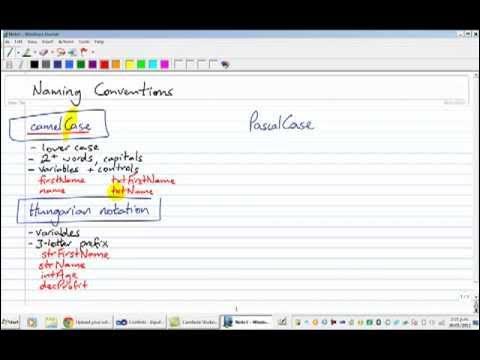 Note1 - Windows Journal
File Edit View Insert Actions Tools Help
Naming Conventions
camelCase
PascalCase
- lower case
- 2+ words, capitals
- variables + controls
firstName txtFirstName
name txtName
Hungarian notation
- variables
- 3-letter prefix
strFirstName
strName
intAge
decProfit